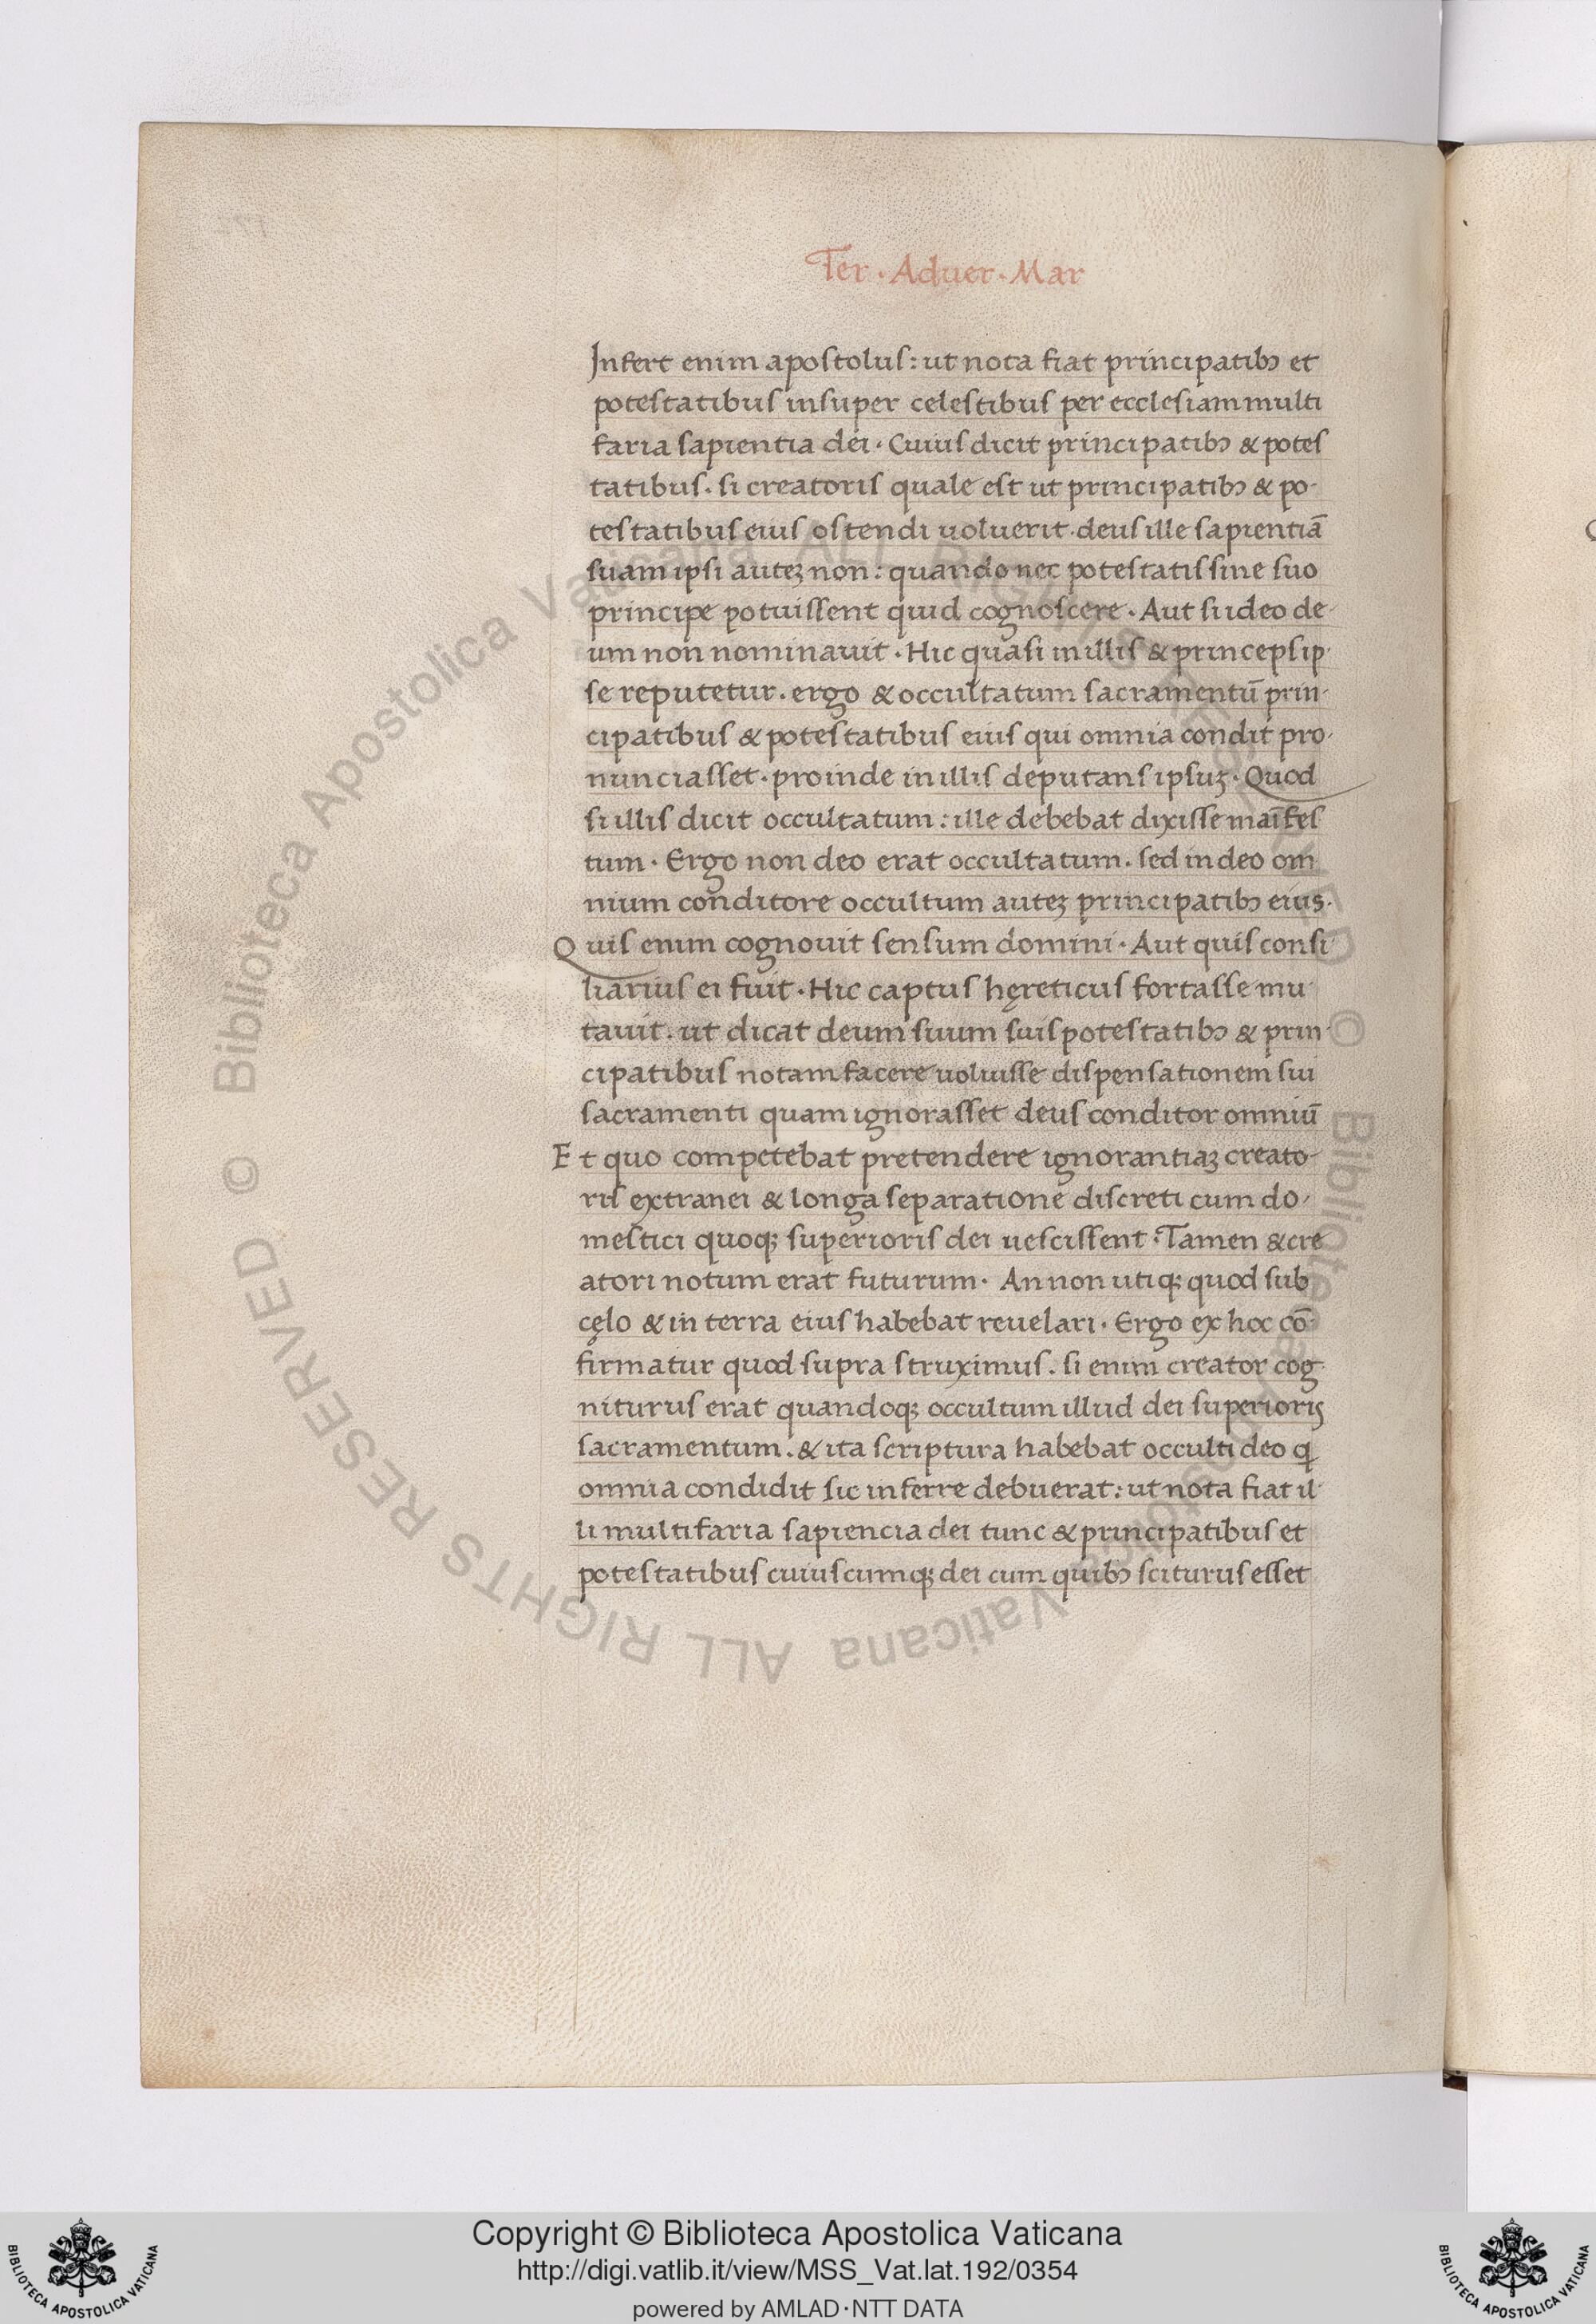 Ter · Aduer · Mar
Infert enim apostolus: ut nota fiat principatibꝫ et
potestatibus insuper celestibus per ecclesiam multi
faria sapientia dei · Cuius dicit principatibꝫ & potes
tatibus · si creatoris quale est ut principatibꝫ & po-
testatibus eius ostendi uoluerit · deus ille sapientiā
suam ipsi auteꝫ non: quando nec potestatis sine suo
principe potuissent quid cognoscere · Aut si ideo de-
um non nominauit · Hic quasi in illis & princeps ip-
se reputetur · ergo & occultatum sacramentū prin-
cipatibus & potestatibus eius qui omnia condit pro-
nunciasset · proinde in illis deputans ipsuꝫ · Quod
si illis dicit occultatum: ille debebat dixisse maīfes
tum · Ergo non deo erat occultatum · sed in deo om
nium conditore occultum auteꝫ principatibꝫ eius ·
Quis enim cognouit sensum domini · Aut quis consi-
liarius ei fuit · Hic captus hęreticus fortasse mu-
tauit · ut dicat deum suum suis potestatibꝫ & prin-
cipatibus notam facere uoluisse dispensationem sui
sacramenti quam ignorasset deus conditor omniū
Et quo competebat pretendere ignorantiaꝫ creato-
ris extranei & longa separatione discreti cum do-
mestici quoqꝫ superioris dei nescissent · Tamen & cre
atori notum erat futurum · An non utiqꝫ quod sub
cęlo & in terra eius habebat reuelari · Ergo ex hoc cō-
firmatur quod supra struximus · si enim creator cog-
niturus erat quandoqꝫ occultum illud dei superioris
sacramentum · & ita scriptura habebat occulti deo q̄
omnia condidit sic inferre debuerat: ut nota fiat il-
li multifaria sapiencia dei tunc & principatibus et
potestatibus cuiuscumqꝫ dei cum quibꝫ sciturus esset
© Biblioteca Apostolica Vaticana ALL RIGHTS RESERVED © Biblioteca Apostolica Vaticana ALL RIGHTS RESERVED
Copyright © Biblioteca Apostolica Vaticana
http://digi.vatlib.it/view/MSS_Vat.lat.192/0354
powered by AMLAD·NTT DATA
BIBLIOTECA APOSTOLICA VATICANA
BIBLIOTECA APOSTOLICA VATICANA